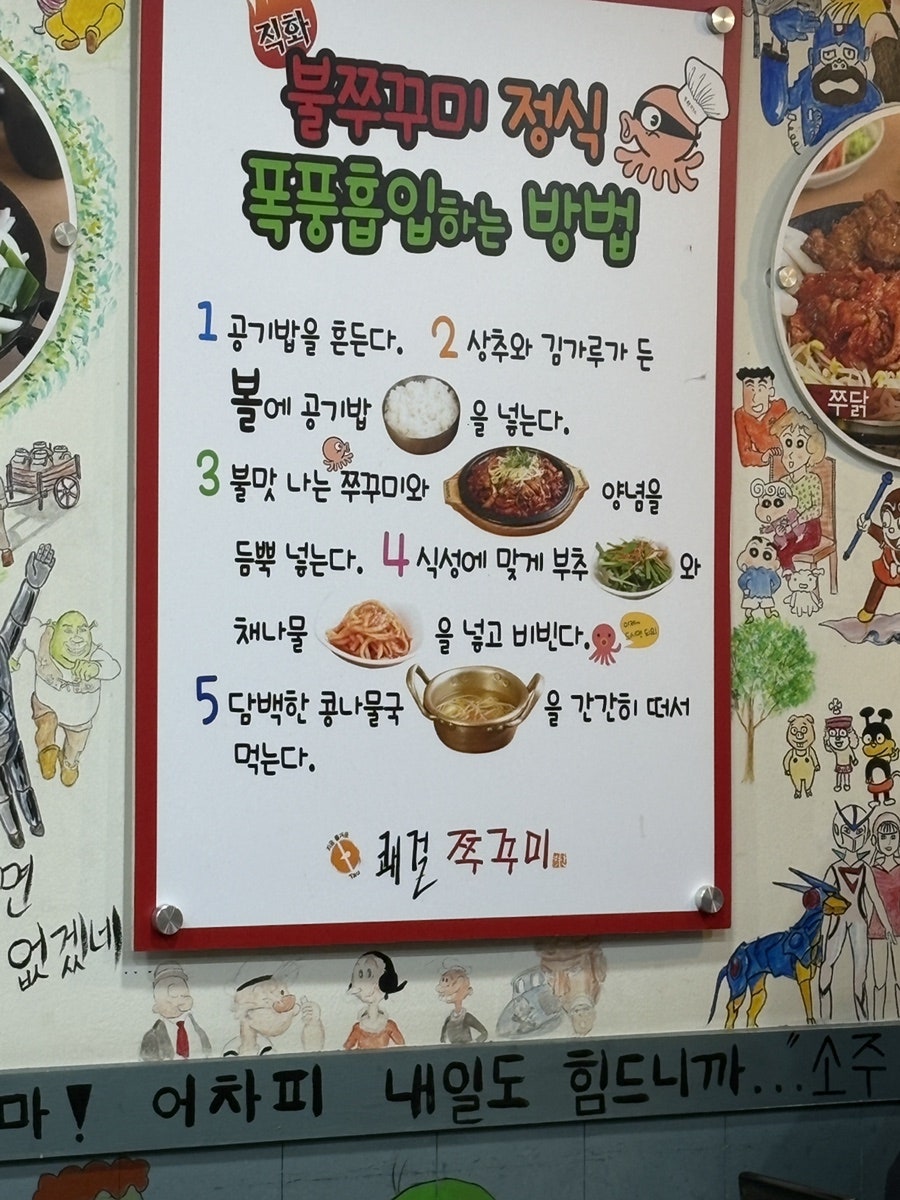 직화
불쭈꾸미 정식
폭풍흡입하는 방법
1 공기밥을 흔든다. 2 상추와 김가루가 든
볼에 공기밥 을 넣는다.
3 불맛 나는 쭈꾸미와 양념을
듬뿍 넣는다. 4 식성에 맞게 부추 와
채나물 을 넣고 비빈다.
5 담백한 콩나물국 을 간간히 떠서
먹는다.
쾌걸 쭈꾸미
쭈닭
면
없겠네
마! 어차피 내일도 힘드니까..." 소주